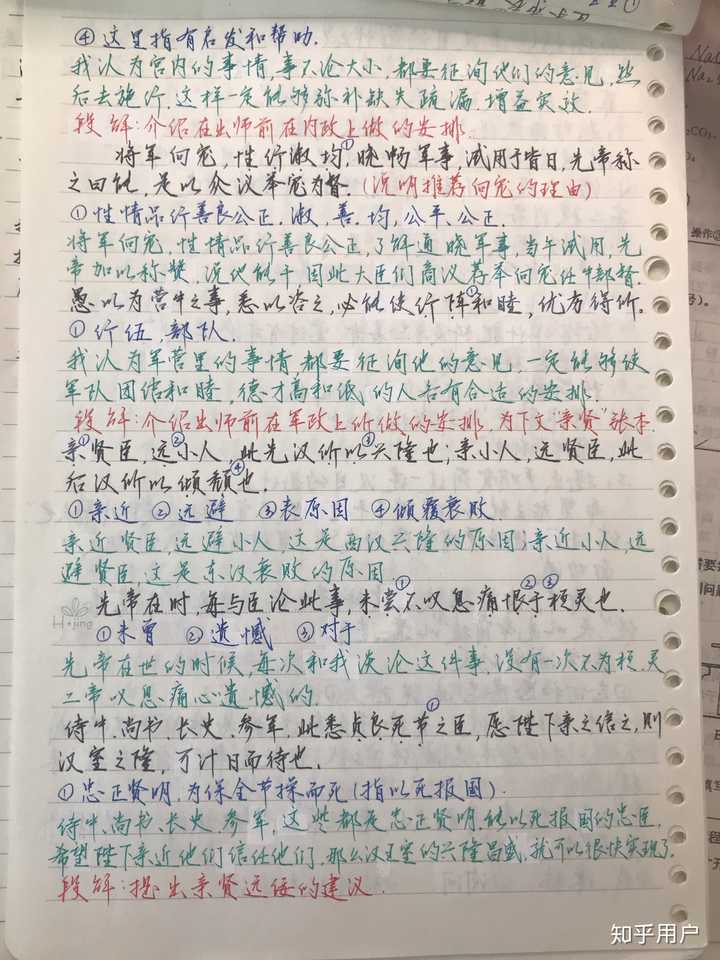 ④这里指有启发和帮助.
我认为宫内的事情,事不论大小,都要征询他们的意见,然
后去施行,这样一定能够弥补缺失疏漏,增益实效.
段解:介绍在出师前在内政上做的安排.
将军向宠,性行淑均①,晓畅军事,试用于昔日,先帝称
之曰能,是以众议举宠为督.(说明推荐向宠的理由)
①性情品行善良公正.淑,善.均,公平,公正.
将军向宠,性情品行善良公正,了解通晓军事,当年试用,先
帝加以称赞,说他能干因此大臣们商议荐举向宠任中部督.
愚以为营中之事,悉以咨之,必能使行阵①和睦,优劣得所.
①行伍,部队.
我认为军营里的事情,都要征询他的意见,一定能够使
军队团结和睦,德才高和低的人各有合适的安排.
段解:介绍出师前在军政上所做的安排,为下文"亲贤"张本.
亲①贤臣,远②小人,此先汉所以③兴隆也;亲小人,远贤臣,此
后汉所以倾颓④也.
①亲近 ②远避 ③表原因 ④倾覆衰败
亲近贤臣,远避小人,这是西汉兴隆的原因;亲近小人,远
避贤臣,这是东汉衰败的原因
先帝在时,每与臣论此事,未尝①不叹息痛恨②于③桓灵也.
①未曾 ②遗憾 ③对于
先帝在世的时候,每次和我谈论这件事,没有一次不为桓、灵
二帝叹息痛心遗憾的.
侍中、尚书、长史、参军,此悉贞良死节①之臣,愿陛下亲之信之,则
汉室之隆,可计日而待也.
①忠正贤明,为保全节操而死(指以死报国).
侍中、尚书、长史、参军,这些都是忠正贤明、能以死报国的忠臣,
希望陛下亲近他们信任他们,那么汉王室的兴隆昌盛,就可以很快实现了.
段解:提出亲贤远佞的建议.
H·jing
操作
知乎用户